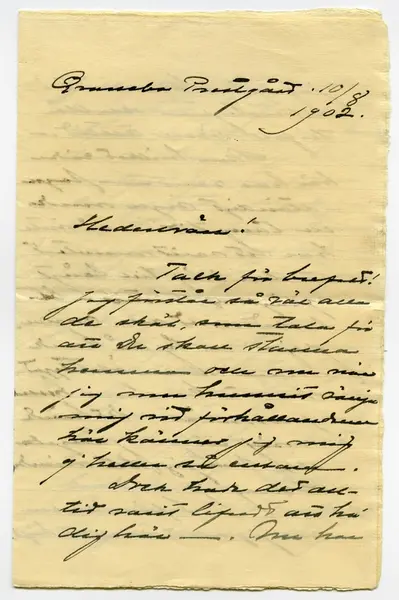 Prästgård 10/8
1902.
Hedersvän!
Tack för brefvet!
Jag förstår så väl alla
de skäl, som tala för
att Du skall stanna
hemma och nu när
jag nu hunnit vänja
mig vid förhållandena
här känner jag mig
ej heller så ensam.
Dock hade det all-
tid varit att ha
dig här —. Nu har